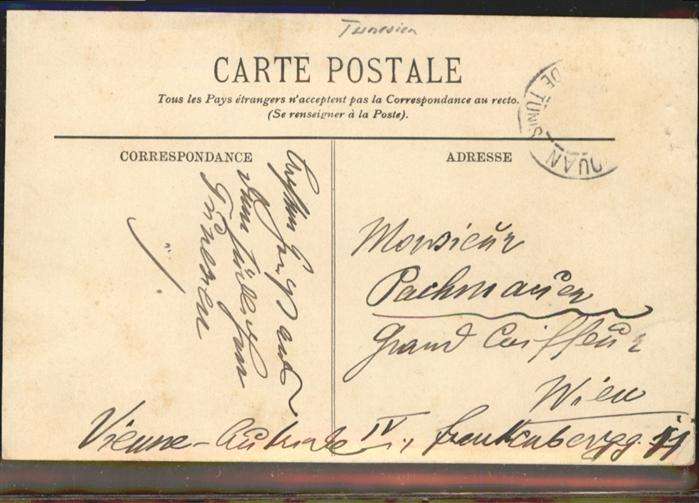 Tunesien
CARTE POSTALE
Tous les Pays étrangers n'acceptent pas la Correspondance au recto.
(Se renseigner à la Poste).
DE TUNIS
OUAN
CORRESPONDANCE
ADRESSE
aus
Tunesien
Monsieur
Pachmauer
Grand Coiffeur
Wien
Vienne - Autriche IV., Frankenbergg.